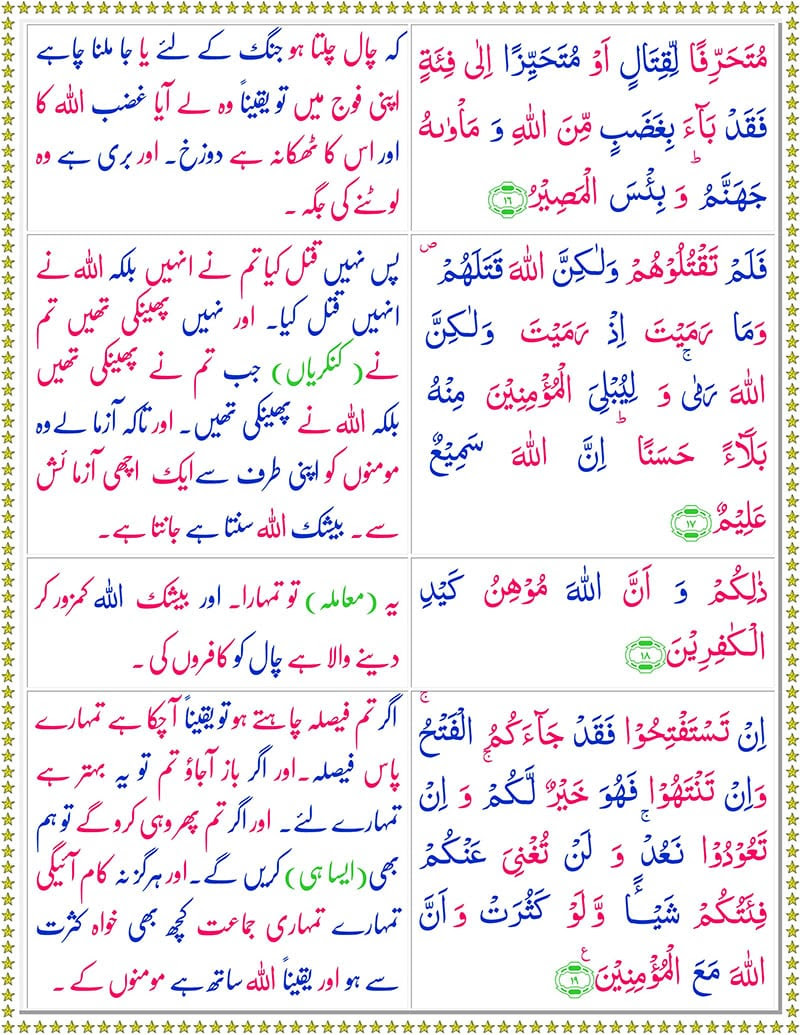 مُتَحَرِّفًا لِّقِتَالٍ اَوْ مُتَحَيِّزًا اِلٰى فِئَةٍ
فَقَدْ بَآءَ بِغَضَبٍ مِّنَ اللّٰهِ وَ مَاْوٰىهُ
جَهَنَّمُ ؕ وَ بِئْسَ الْمَصِيْرُ ۱۶
کہ چال چلتا ہو جنگ کے لئے یا جا ملنا چاہے
اپنی فوج میں تو یقیناً وہ لے آیا غضب اللہ کا
اور اس کا ٹھکانہ ہے دوزخ۔ اور بری ہے وہ
لوٹنے کی جگہ ۔
فَلَمْ تَقْتُلُوْهُمْ وَلٰكِنَّ اللّٰهَ قَتَلَهُمْ ۪
وَمَا رَمَيْتَ اِذْ رَمَيْتَ وَلٰكِنَّ
اللّٰهَ رَمٰى ۚ وَ لِيُبْلِىَ الْمُؤْمِنِيْنَ مِنْهُ
بَلَآءً حَسَنًا ؕ اِنَّ اللّٰهَ سَمِيْعٌ
عَلِيْمٌ ۱۷
پس نہیں قتل کیا تم نے انہیں بلکہ اللہ نے
انہیں قتل کیا۔ اور نہیں پھینکی تھیں تم
نے (کنکریاں) جب تم نے پھینکی تھیں
بلکہ اللہ نے پھینکی تھیں۔ اور تاکہ آزما لے وہ
مومنوں کو اپنی طرف سے ایک اچھی آزمائش
سے۔ بیشک اللہ سنتا ہے جانتا ہے۔
ذٰلِكُمْ وَ اَنَّ اللّٰهَ مُوْهِنُ كَيْدِ
الْكٰفِرِيْنَ ۱۸
یہ (معاملہ) تو تمہارا۔ اور بیشک اللہ کمزور کر
دینے والا ہے چال کو کافروں کی ۔
اِنْ تَسْتَفْتِحُوْا فَقَدْ جَآءَكُمُ الْفَتْحُ ۚ
وَاِنْ تَنْتَهُوْا فَهُوَ خَيْرٌ لَّكُمْ ۚ وَ اِنْ
تَعُوْدُوْا نَعُدْ ۚ وَ لَنْ تُغْنِىَ عَنْكُمْ
فِئَتُكُمْ شَيْـًٔا وَّلَوْ كَثُرَتْ وَ اَنَّ
اللّٰهَ مَعَ الْمُؤْمِنِيْنَ ۱۹ ع
اگر تم فیصلہ چاہتے ہو تو یقیناً آ چکا ہے تمہارے
پاس فیصلہ۔ اور اگر باز آجاؤ تم تو یہ بہتر ہے
تمہارے لئے۔ اور اگر تم پھر وہی کرو گے تو ہم
بھی (ایسا ہی) کریں گے۔ اور ہرگز نہ کام آئیگی
تمہارے تمہاری جماعت کچھ بھی خواہ کثرت
سے ہو اور یقیناً اللہ ساتھ ہے مومنوں کے ۔